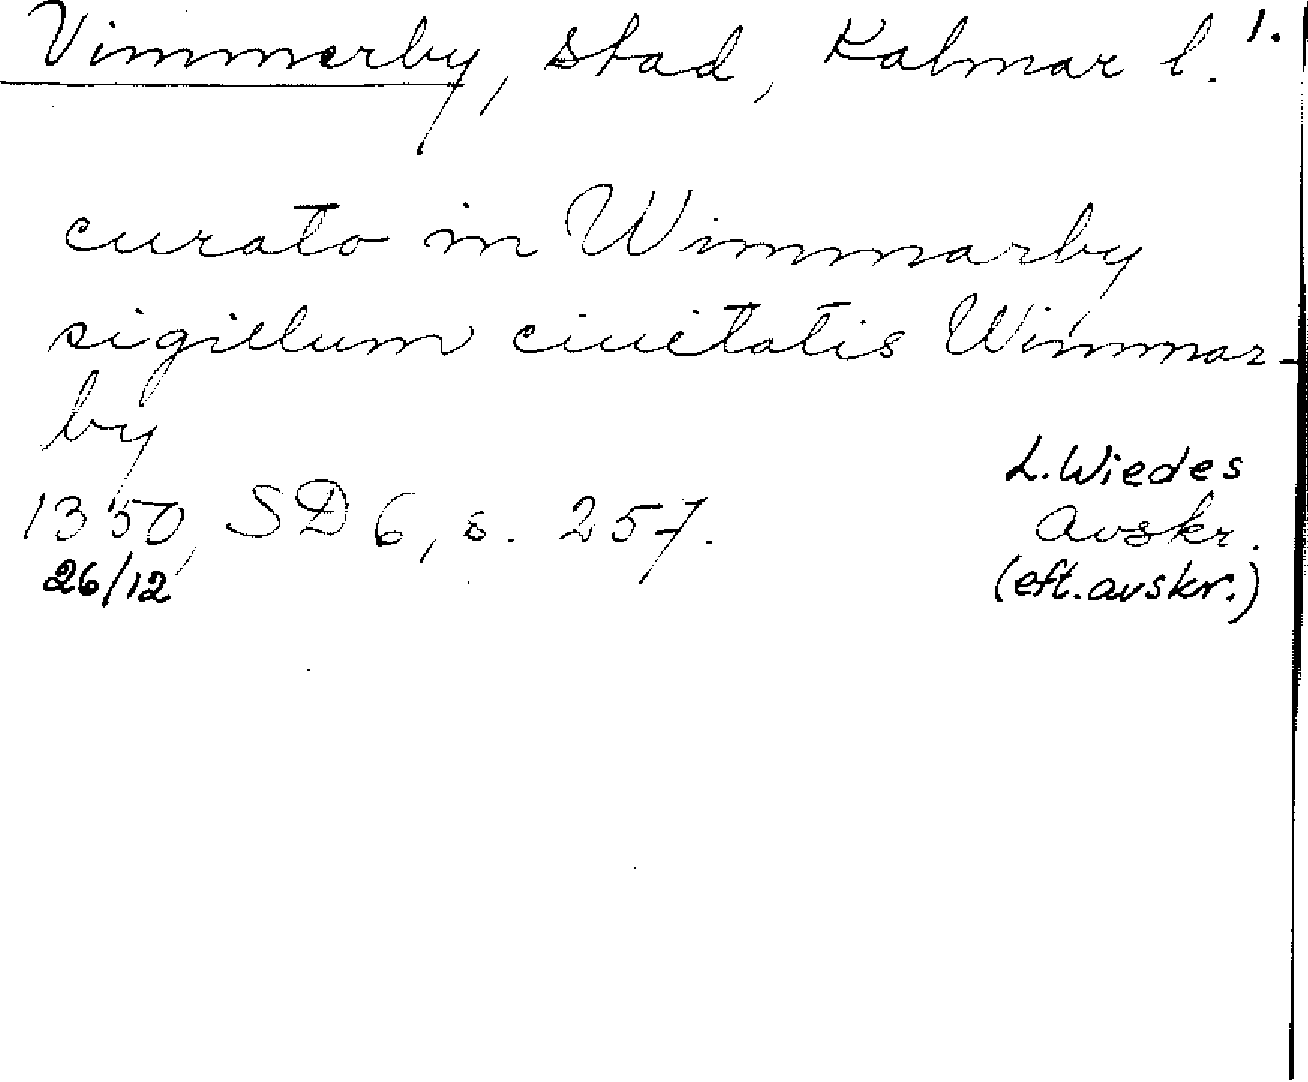 Vimmerby, stad, Kalmar l. 1.
curato in Wimmarby
sigillum ciuitatis Wimmar-
by
1350, SD 6, s. 257.
26/12
L. Wiedes
Avskr.
(eft. avskr.)